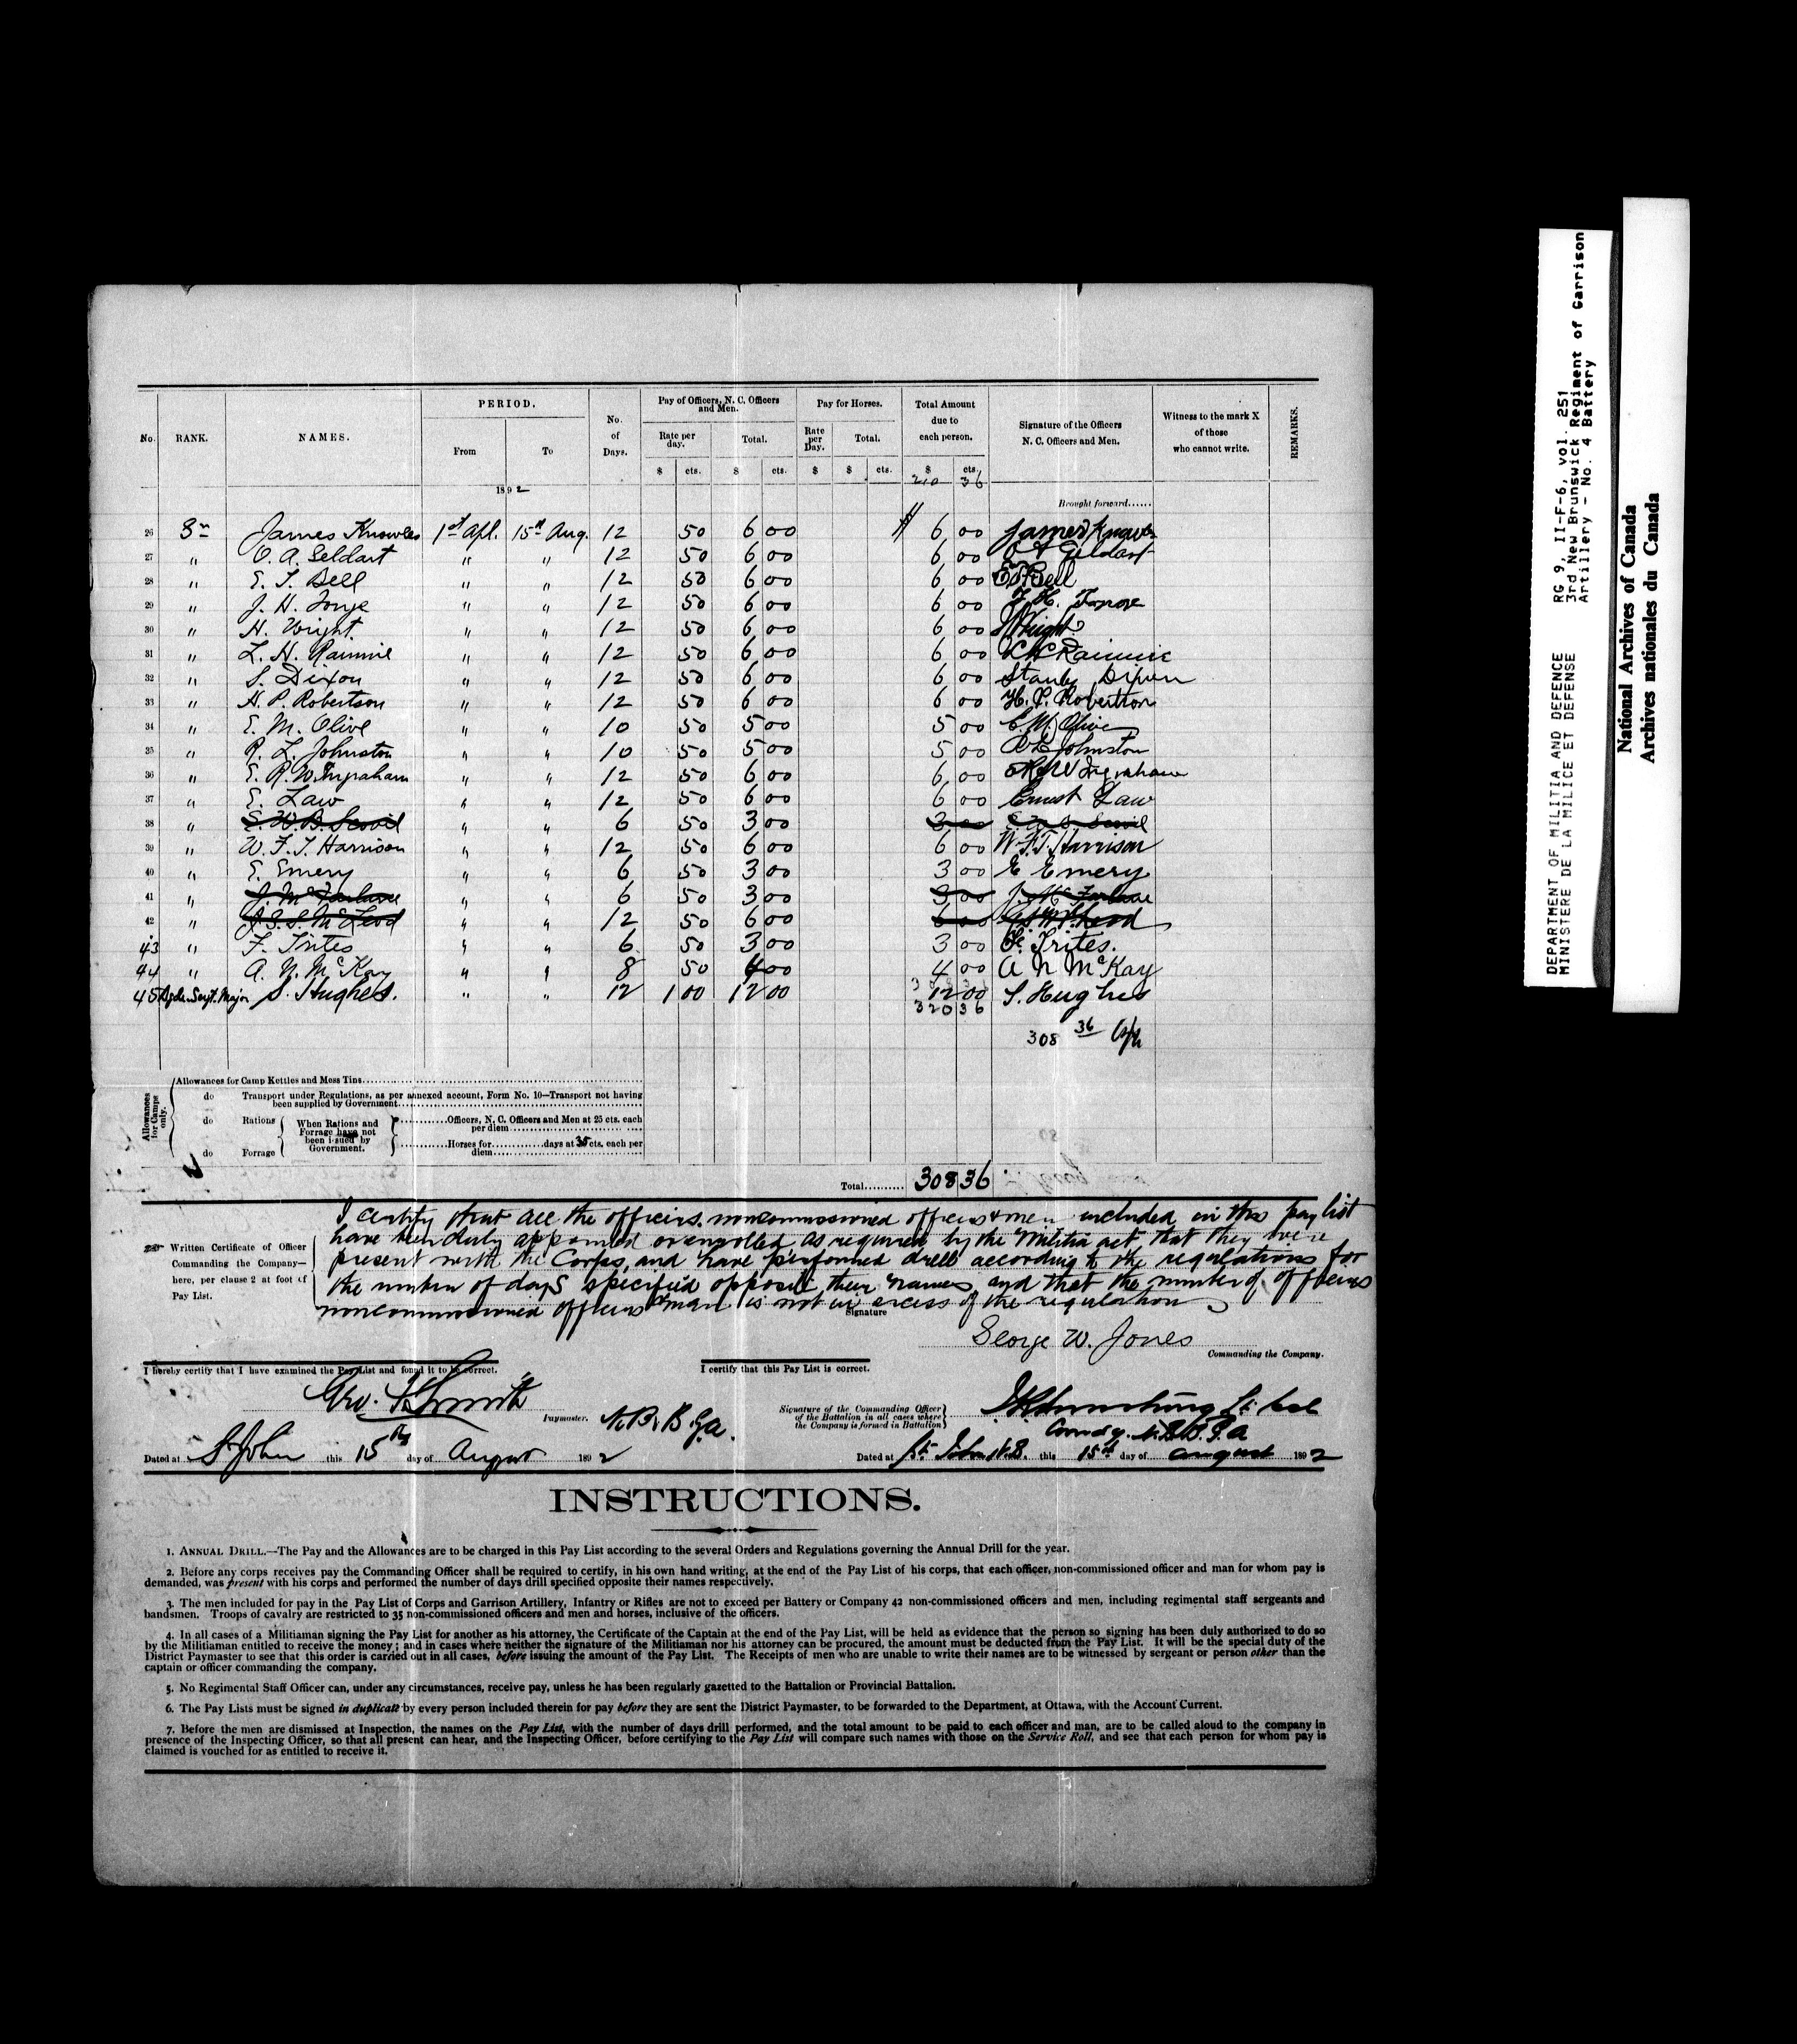 No. RANK. NAMES. PERIOD. From To No. of Days. Pay of Officers, N. C. Officers and Men. Rate per day. Total. Pay for Horses. Rate per Day. Total. Total Amount due to each person. Signature of the Officers N. C. Officers and Men. Witness to the mark X of those who cannot write. REMARKS.
$ cts. $ cts. $ $ cts. $ cts.
1892 210 36
Brought forward......
26 Gr James Knowles 1st Apl. 15th Aug. 12 50 6 00 $ 6 00 James Knowles
27 " O. A. Geldart " " 12 50 6 00 6 00 O A Geldart
28 " E. T. Bell " " 12 50 6 00 6 00 E T Bell
29 " J. H. " " 12 50 6 00 6 00 J. H.
30 " H. Wright " " 12 50 6 00 6 00 H Wright
31 " L. H. Rainnie " " 12 50 6 00 6 00 L H Rainnie
32 " S. Dixon " " 12 50 6 00 6 00 Stanley Dixon
33 " H. P. Robertson " " 12 50 6 00 6 00 H. P. Robertson
34 " E. M. Olive " " 10 50 5 00 5 00 E. M. Olive
35 " R. L. Johnston " " 10 50 5 00 5 00 R L Johnston
36 " E. R. W. Ingraham " " 12 50 6 00 6 00 E R W Ingraham
37 " E. Law " " 12 50 6 00 6 00 Ernest Law
38 " E. W. B. Scovil " " 6 50 3 00 3 00 E. W. B. Scovil
39 " W. F. T. Harrison " " 12 50 6 00 6 00 W. F. T. Harrison
40 " E. Emery " " 6 50 3 00 3 00 E Emery
41 " J. McFarlane " " 6 50 3 00 3 00 J. McFarlane
42 " McLeod " " 12 50 6 00 6 00 McLeod
43 " F. Trites " " 6 50 3 00 3 00 F. Trites.
44 " A. N. McKay " " 8 50 4 00 4 00 A N McKay
45 Sergt. Major S. Hughes. " " 12 1 00 12 00 12 00 S. Hughes
320 36
308 36
Allowances for Camps only.
Allowances for Camp Kettles and Mess Tins
do Transport under Regulations, as per annexed account, Form No. 10—Transport not having been supplied by Government
do Rations When Rations and Forrage have not been issued by Government. Officers, N. C. Officers and Men at 25 cts. each per diem
do Forrage Horses for days at 35 cts. each per diem
Total.......... 308 36
Written Certificate of Officer Commanding the Company—here, per clause 2 at foot of Pay List.
I certify that all the officers. noncommissioned officers & men included in this pay list
have been duly appointed or enrolled as required by the Militia act, that they were
present with the Corps, and have performed drill according to the regulations for
the number of days specified opposite their names and that the number of officers
noncommissioned officers & men is not in excess of the regulation
Signature
George W. Jones
Commanding the Company.
I hereby certify that I have examined the Pay List and found it to be correct.
Geo. F. Smith
Paymaster. N. B. B. G. A.
Dated at St John this 15th day of August 1892
I certify that this Pay List is correct.
Signature of the Commanding Officer of the Battalion in all cases where the Company is formed in Battalion
Armstrong Lt. Col
Comdg. N. B. B. G. A
Dated at St. John N.B. this 15th day of August 1892
INSTRUCTIONS.
1. ANNUAL DRILL.—The Pay and the Allowances are to be charged in this Pay List according to the several Orders and Regulations governing the Annual Drill for the year.
2. Before any corps receives pay the Commanding Officer shall be required to certify, in his own hand writing, at the end of the Pay List of his corps, that each officer, non-commissioned officer and man for whom pay is
demanded, was present with his corps and performed the number of days drill specified opposite their names respectively.
3. The men included for pay in the Pay List of Corps and Garrison Artillery, Infantry or Rifles are not to exceed per Battery or Company 42 non-commissioned officers and men, including regimental staff sergeants and
bandsmen. Troops of cavalry are restricted to 35 non-commissioned officers and men and horses, inclusive of the officers.
4. In all cases of a Militiaman signing the Pay List for another as his attorney, the Certificate of the Captain at the end of the Pay List, will be held as evidence that the person so signing has been duly authorized to do so
by the Militiaman entitled to receive the money; and in cases where neither the signature of the Militiaman nor his attorney can be procured, the amount must be deducted from the Pay List. It will be the special duty of the
District Paymaster to see that this order is carried out in all cases, before issuing the amount of the Pay List. The Receipts of men who are unable to write their names are to be witnessed by sergeant or person other than the
captain or officer commanding the company.
5. No Regimental Staff Officer can, under any circumstances, receive pay, unless he has been regularly gazetted to the Battalion or Provincial Battalion.
6. The Pay Lists must be signed in duplicate by every person included therein for pay before they are sent the District Paymaster, to be forwarded to the Department, at Ottawa, with the Account Current.
7. Before the men are dismissed at Inspection, the names on the Pay List, with the number of days drill performed, and the total amount to be paid to each officer and man, are to be called aloud to the company in
presence of the Inspecting Officer, so that all present can hear, and the Inspecting Officer, before certifying to the Pay List will compare such names with those on the Service Roll, and see that each person for whom pay is
claimed is vouched for as entitled to receive it.
DEPARTMENT OF MILITIA AND DEFENCE RG 9, II-F-6, vol. 251
MINISTERE DE LA MILICE ET DEFENSE 3rd New Brunswick Regiment of Garrison
Artillery - No. 4 Battery
National Archives of Canada
Archives nationales du Canada